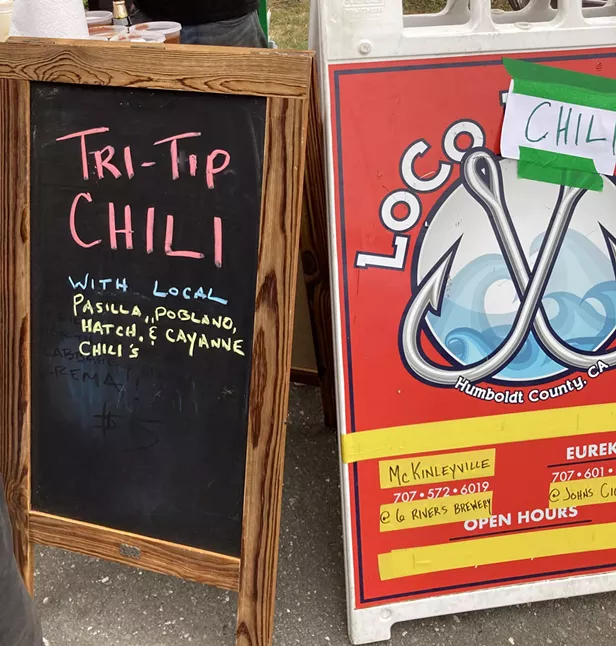 TRI-TIP
CHILI
WITH LOCAL
PASILLA, POBLANO,
HATCH, & CAYANNE
CHILI'S
$5
LOCO
CHIL
Humboldt County, CA
McKINLEYVILLE
707•572•6019
@ 6 RIVERS BREWERY
EUREK
707•601•
@ JOHNS
OPEN HOURS